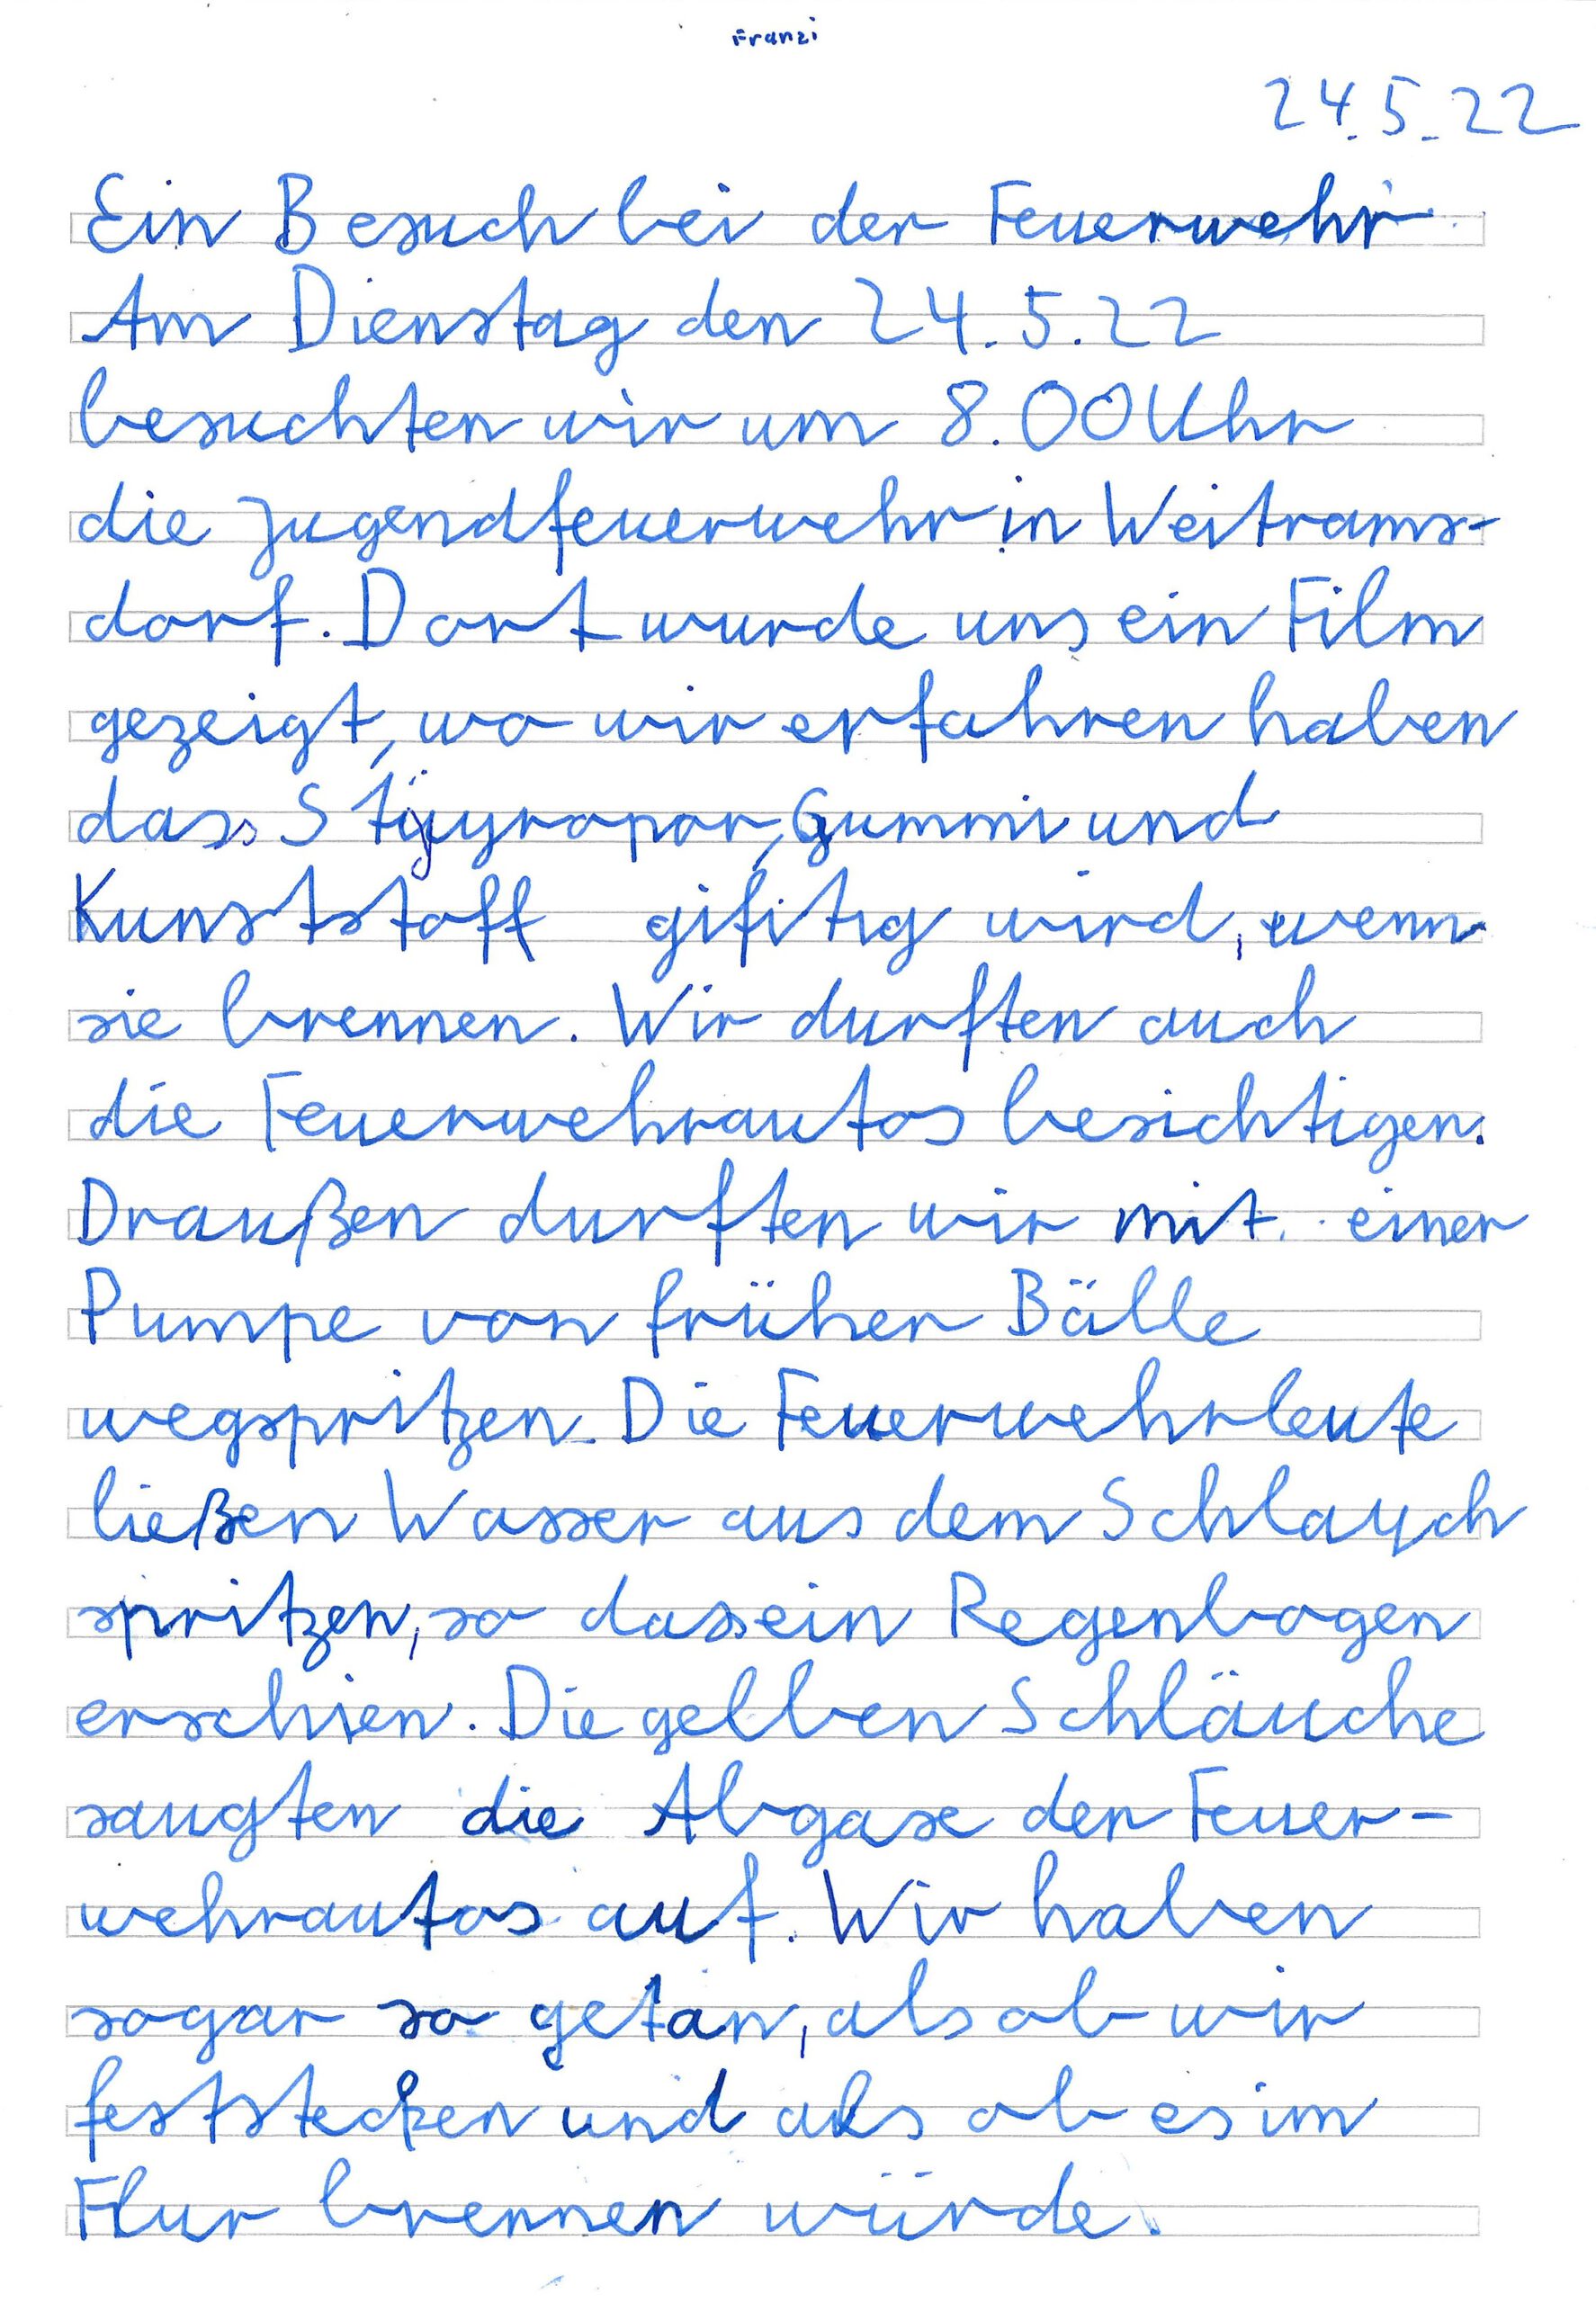 Franzi
24.5.22
Ein Besuch bei der Feuerwehr
Am Dienstag den 24.5.22
besuchten wir um 8.00 Uhr
die Jugendfeuerwehr in Weitrams-
dorf. Dort wurde uns ein Film
gezeigt, wo wir erfahren haben
dass Styyropor, Gummi und
Kunststoff gifitig wird, wenn
sie brennen. Wir durften auch
die Feuerwehrautos besichtigen.
Draußen durften wir mit einer
Pumpe von früher Bälle
wegspritzen. Die Feuerwehrleute
ließen Wasser aus dem Schlauch
spritzen, so dass ein Regenbogen
erschien. Die gelben Schläuche
saugten die Abgase der Feuer-
wehrautos auf. Wir haben
sogar so getan, als ob wir
feststecken und als ob es im
Flur brennen würde.